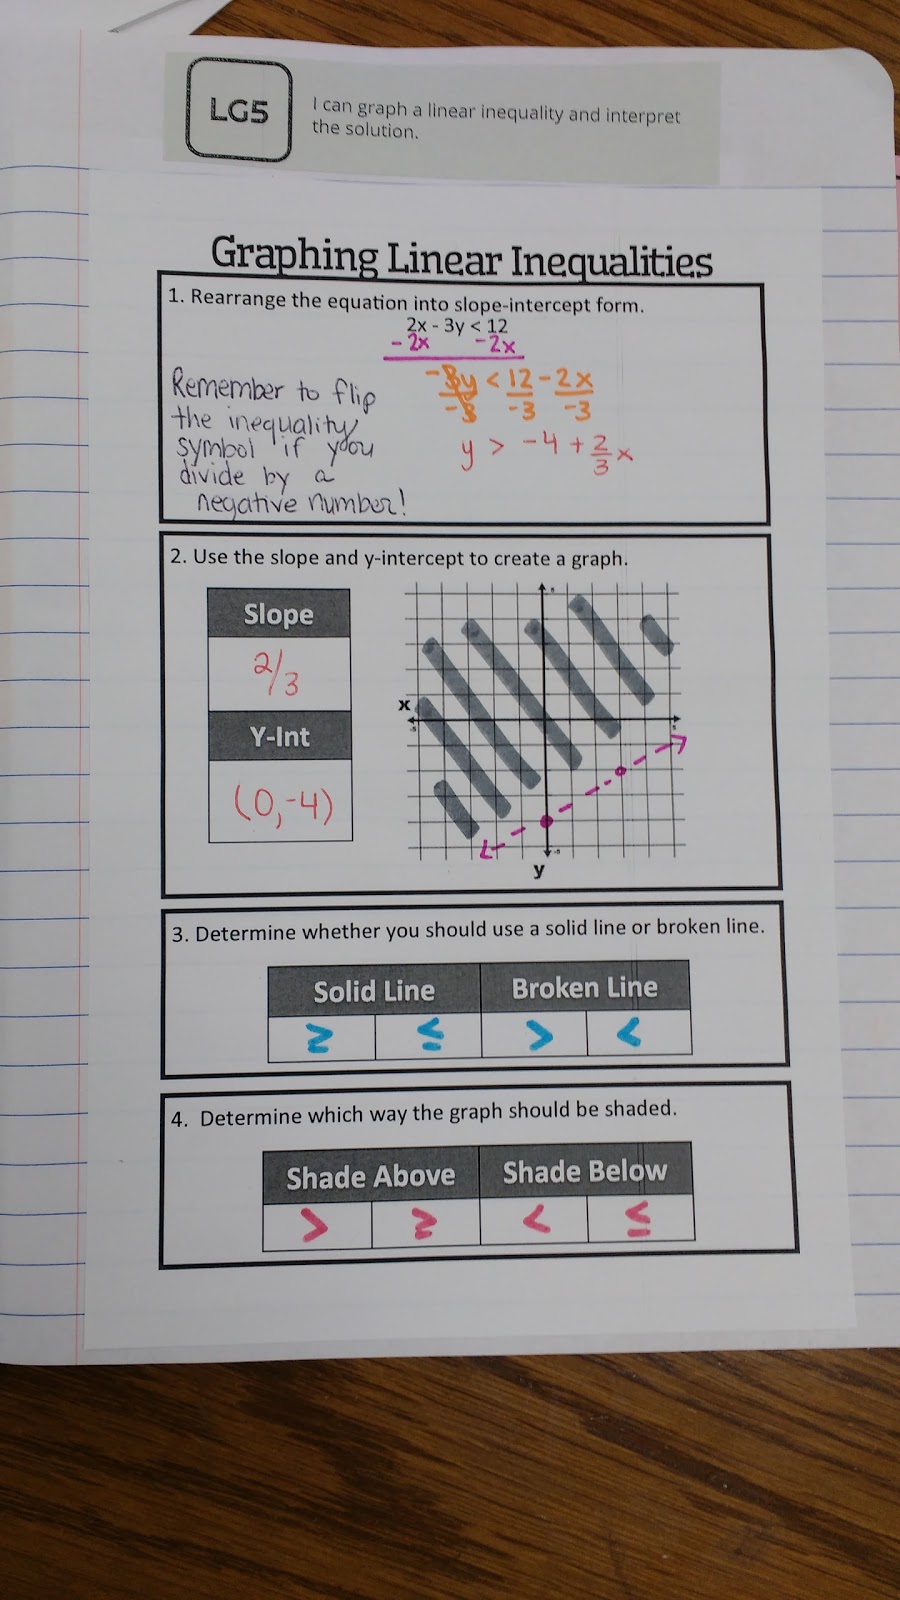 LG5
I can graph a linear inequality and interpret
the solution.
Graphing Linear Inequalities
1. Rearrange the equation into slope-intercept form.
2x - 3y < 12
- 2x -2x
-3y < 12 - 2x
-3 -3 -3
y > -4 + 2/3 x
Remember to flip
the inequality
symbol if you
divide by a
negative number!
2. Use the slope and y-intercept to create a graph.
Slope
2/3
Y-Int
(0,-4)
x
y
3. Determine whether you should use a solid line or broken line.
Solid Line Broken Line
≥ ≤ > <
4. Determine which way the graph should be shaded.
Shade Above Shade Below
> ≥ < ≤